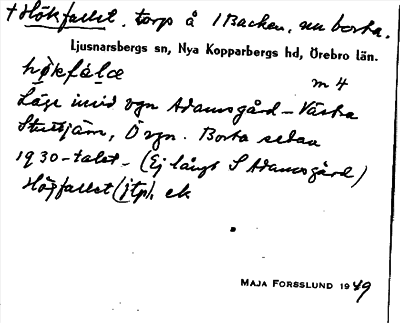 + Hökfallet, torp å 1 Backen, nu borta.
Ljusnarsbergs sn, Nya Kopparbergs hd, Örebro län.
hø̀kfálæ m 4
Läge invid vgn Adamsgård – Västra
tjärn, Ö vgn. Borta sedan
1930-talet – (Ej långt S Adamsgård)
Högfallet (jtp), ek
MAJA FORSSLUND 1949